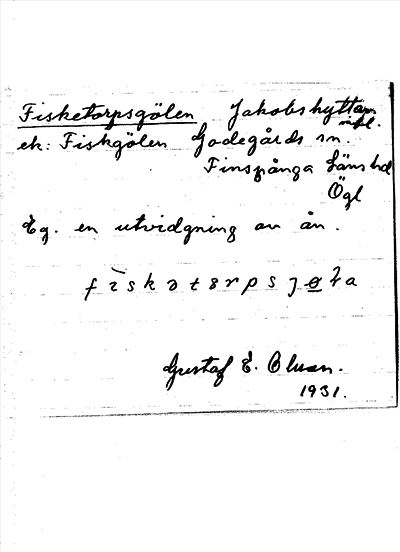 Fisketorpsgölen Jakobshyttan
ek: Fiskgölen Godegårds sn.
Finspånga Läns hd
Ögl
Eg. en utvidgning av ån.
Gustaf E. Olsson.
1931.